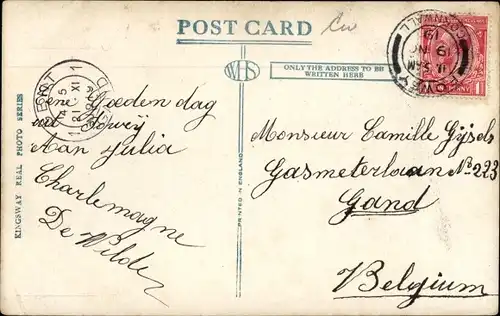 POST CARD
WHS
ONLY THE ADDRESS TO BE
WRITTEN HERE
CORNWALL
19
ONE PENNY
GENT
1
5
21 XI
Eene Goeden dag
uit Fowey
Aan Julia
Charlemagne
De Wilde
Monsieur Camille Gijsels
Gasmeterlaan No 223
Gand
Belgium
KINGSWAY REAL PHOTO SERIES
PRINTED IN ENGLAND